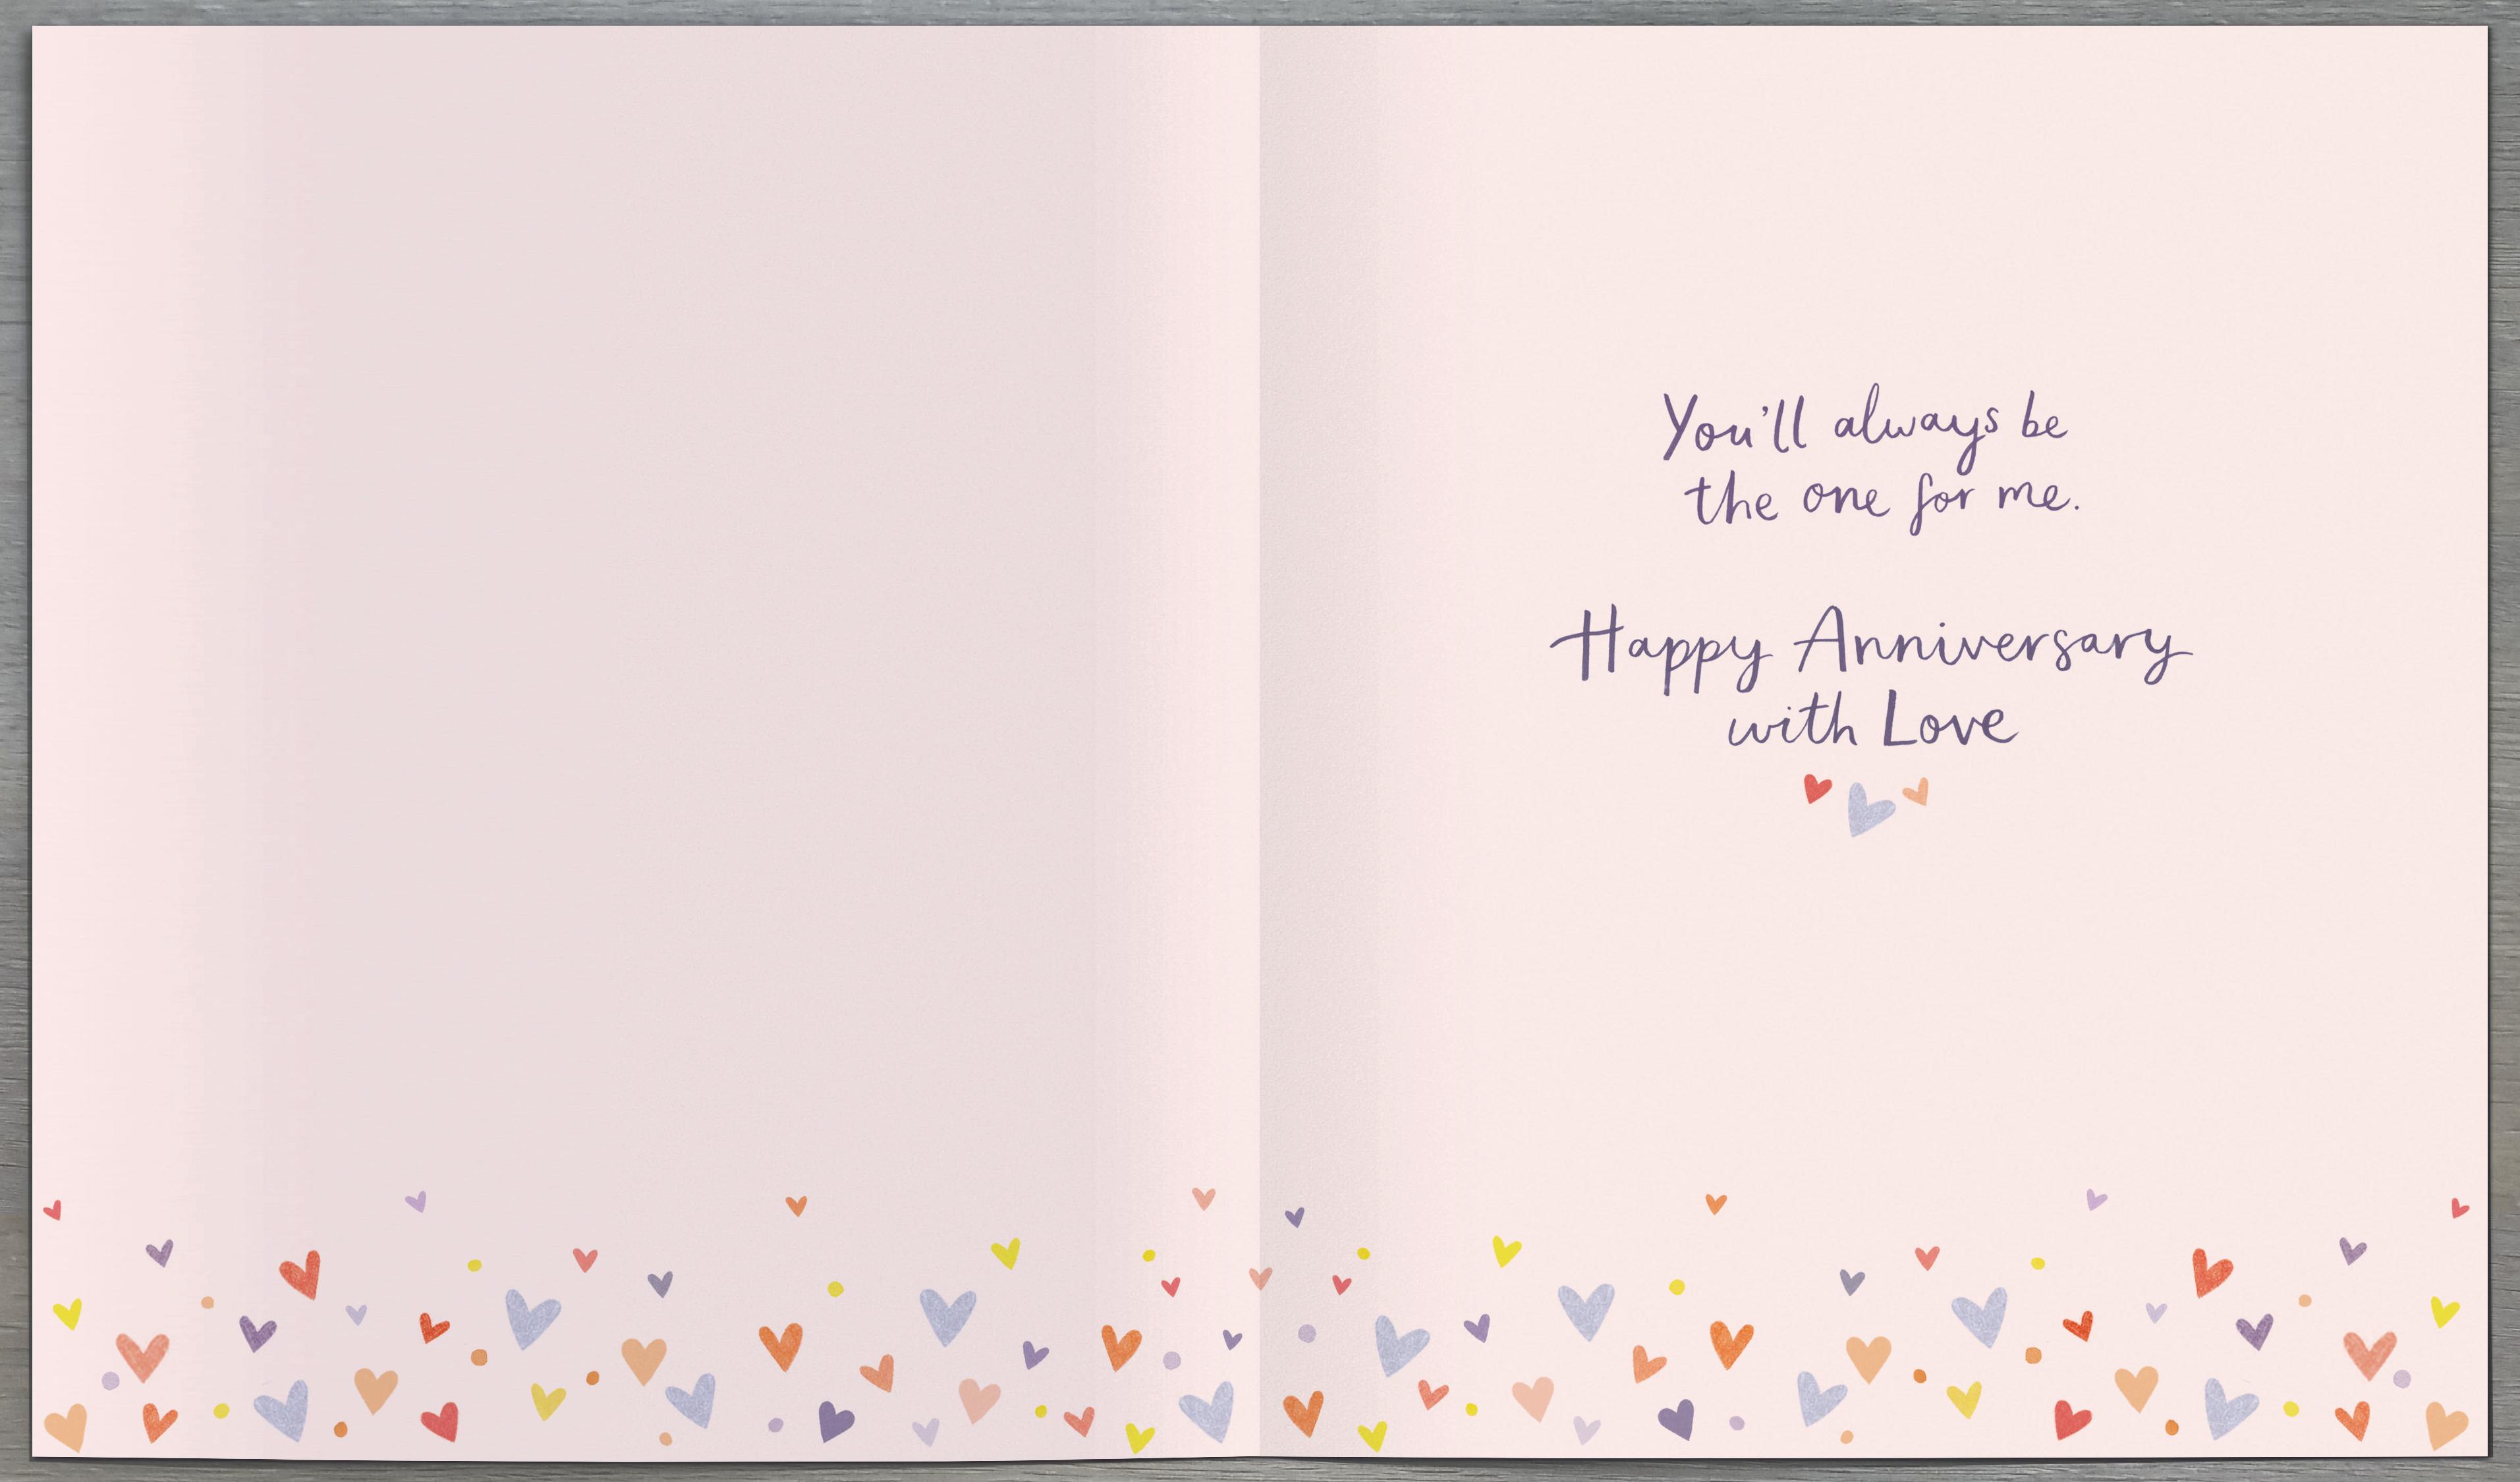 You'll always be
the one for me.
Happy Anniversary
with Love